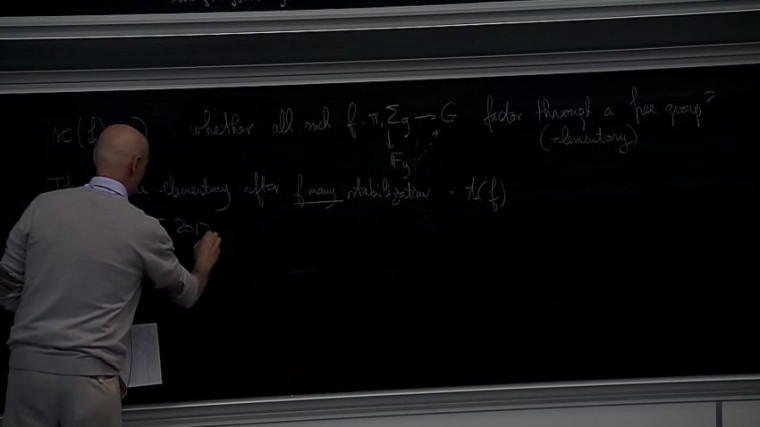 whether all such f : π₁ Σg → G factor through a free group?
(elementary)
Fg
elementary after f many stabilization = t(f)
201